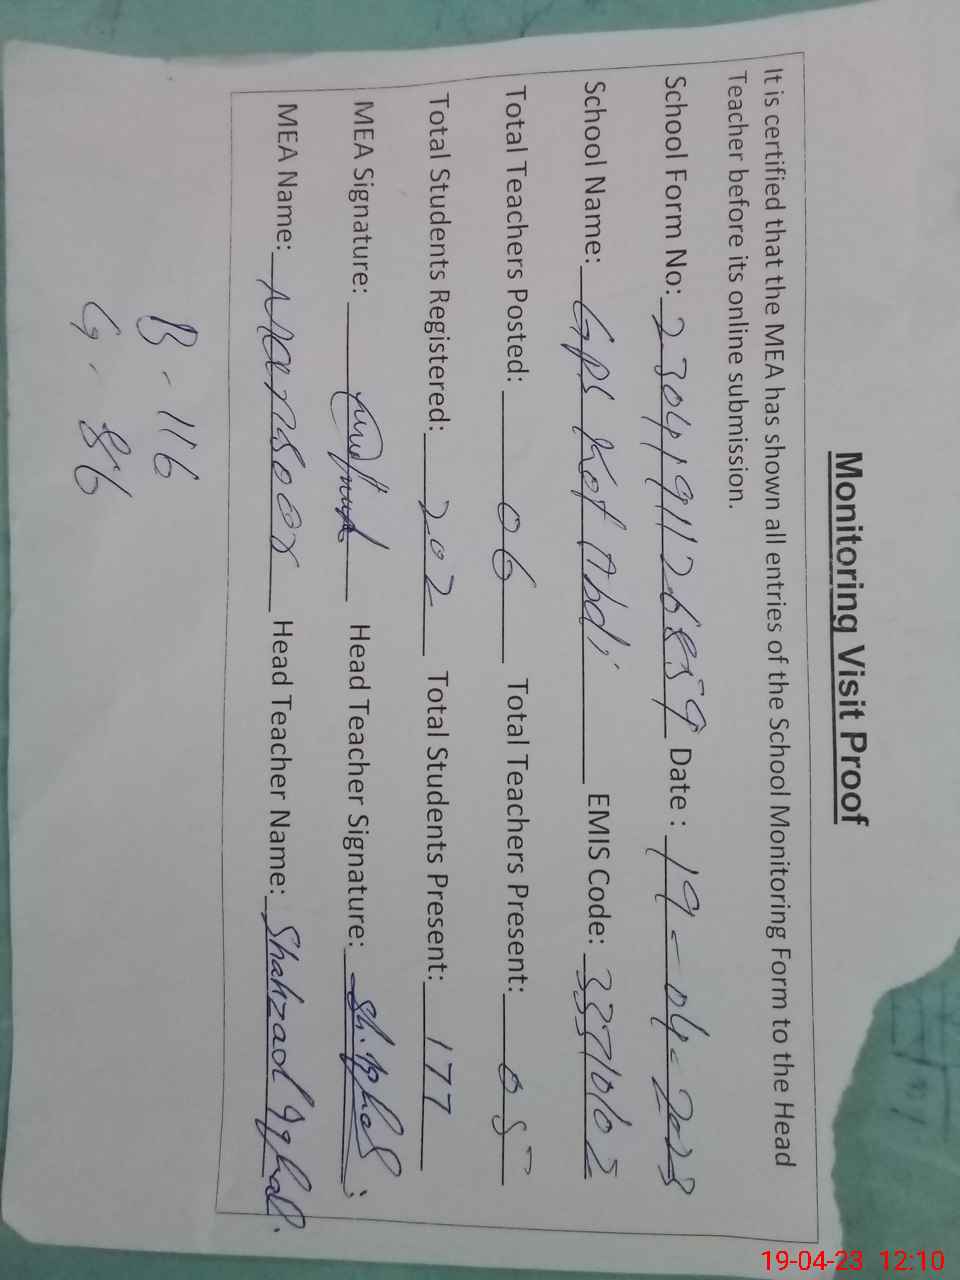 Monitoring Visit Proof
It is certified that the MEA has shown all entries of the School Monitoring Form to the Head
Teacher before its online submission.
School Form No: 2304191126859 Date : 19-04-2023
School Name: GPS Kot Abdi EMIS Code: 33710102
Total Teachers Posted: 06 Total Teachers Present: 05
Total Students Registered: 202 Total Students Present: 177
MEA Signature: Head Teacher Signature: Sh. Iqbal
MEA Name: Mansoor Head Teacher Name: Shahzad Iqbal
B - 116
G - 86
19-04-23 12:10